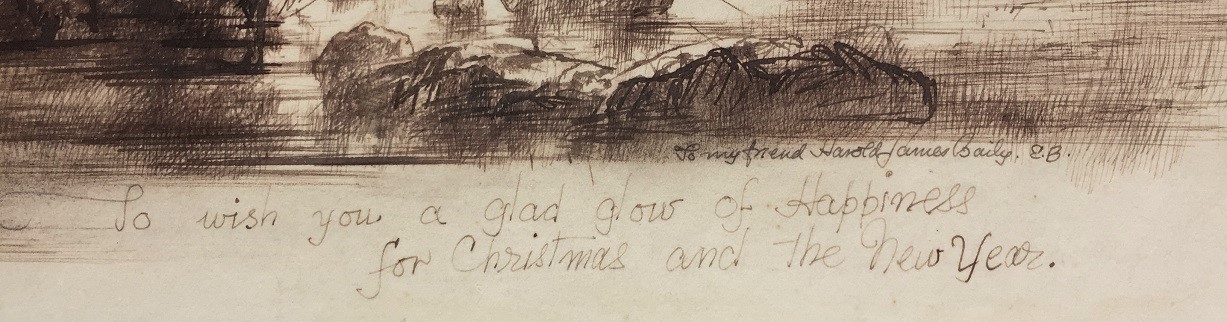 To my friend Harold James Baily. E.B.
To wish you a glad glow of Happiness
for Christmas and the New Year.